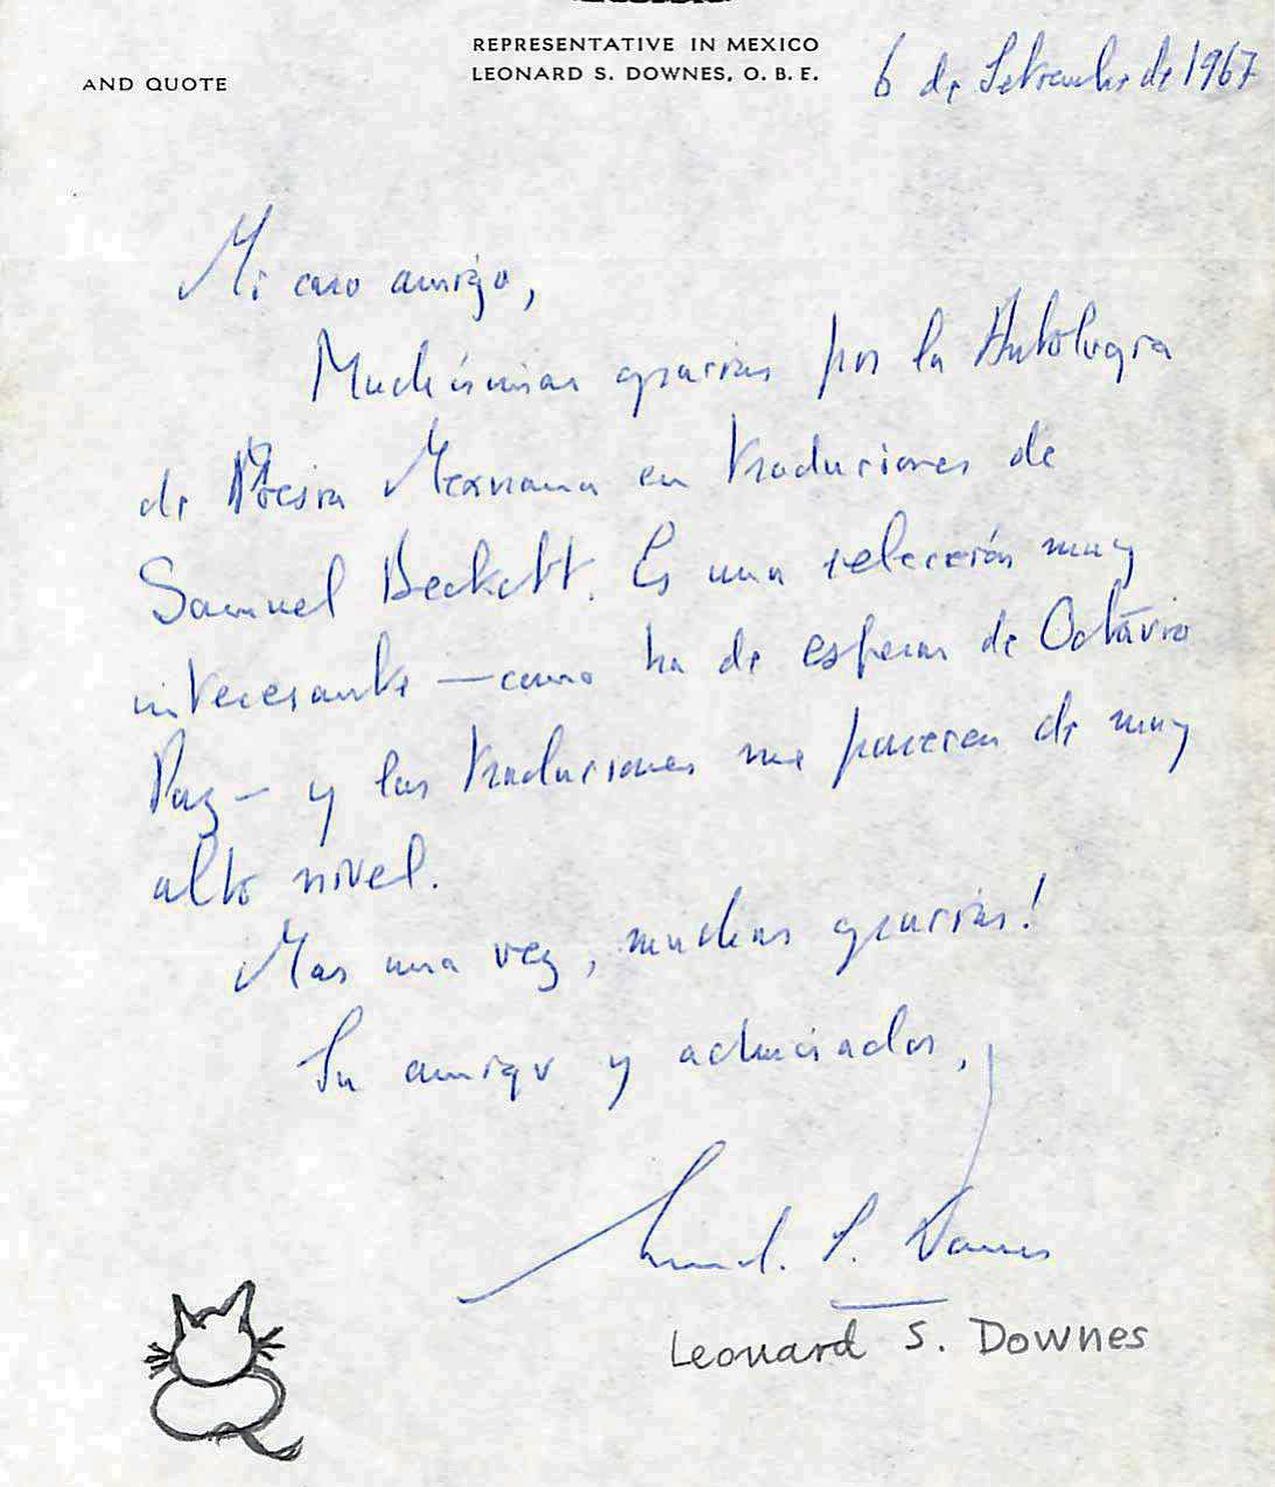 REPRESENTATIVE IN MEXICO
LEONARD S. DOWNES, O. B. E.
AND QUOTE
6 de Setembre de 1967
Mi caro amigo,
Muchísimas gracias por la Antologia
de Poesia Mexicana en traduciones de
Samuel Beckett. Es una selección muy
interesante — como ha de esperar de Octávio
Paz — y las traduciones me parecen de muy
alto nivel.
Mas una vez, muchas gracias!
Su amigo y admirador,
Leonard. S. Downes
Leonard S. Downes